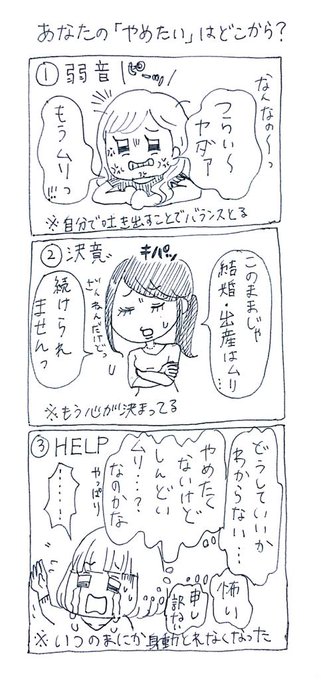 あなたの「やめたい」はどこから?
① 弱音
ピーッ
なんなの〜っ
つらい〜
ヤダァ
もうムリっ!!
※自分で吐き出すことでバランスとる
② 決意
キパッ
このままじゃ
結婚・出産はムリ…
ざんねんだけどっ
続けられ
ませんっ
※もう心が決まってる
③ HELP
どうしていいか
わからない…
やめたく
ないけど
しんどい
ムリ…?
なのかな
やっぱり
………
怖い
申し
訳ない
※いつのまにか身動きとれなくなった